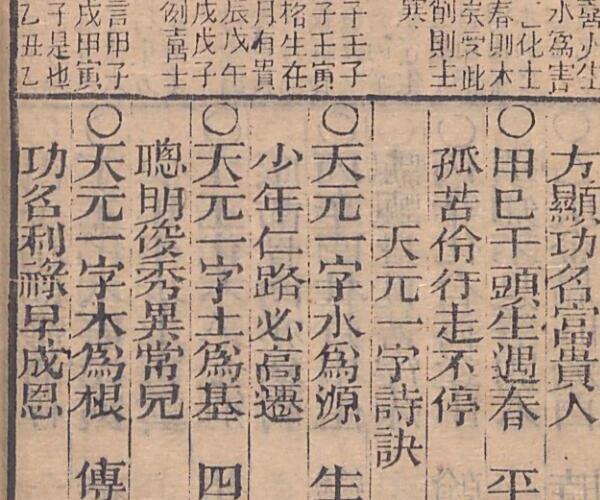 少生
水為害
化土
春則木
矣受此
則主
寒
子壬子
子壬寅
格生在
月有貴
辰戊午
戊戊子
例喜士
言甲子
戊甲寅
子是也
乙丑乙
方顯功名富貴人
〇甲巳干頭生遇春 平
孤苦伶行走不停
天元一字詩訣
〇天元一字水為源 生
少年仁路必高遷
〇天元一字土為基 四
聰明俊秀異常兒
〇天元一字木為根 傳
功名利祿早成恩